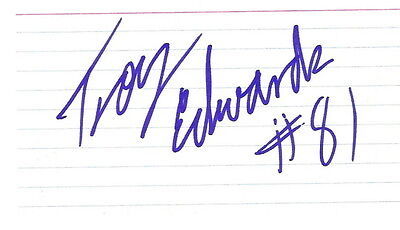 Troy
Edwards
#81